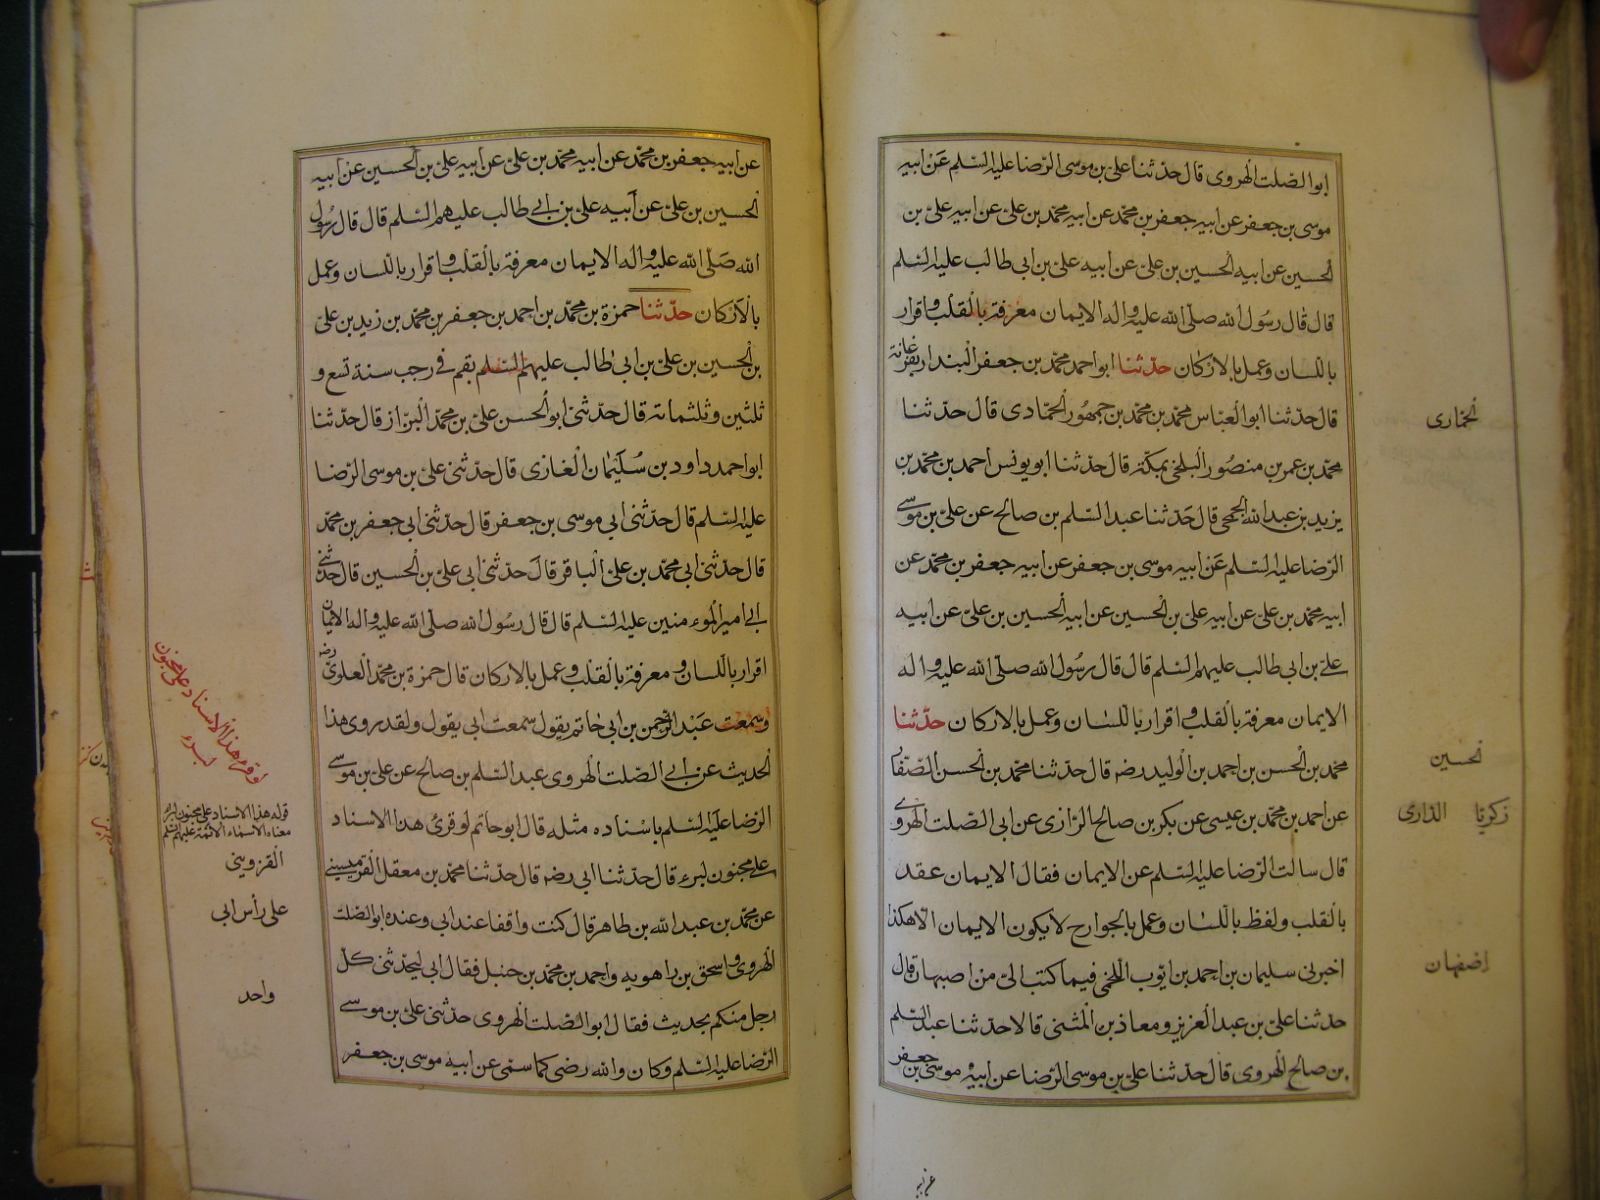 ابوالصّلت الهروی قال حدّثنا علیّ بن موسی الرّضا علیه السّلم عَنْ ابیه
موسی بن جعفر عن ابیه جعفر بن محمّد عن ابیه محمّد بن علیّ عن ابیه علیّ بن
الحسین عن ابیه الحسین بن علیّ عن ابیه علیّ بن ابی طالب علیه السّلم
قال قال رسُول الله صلّی الله علیه واله الایمان معرفة بالقلب واقرار
باللسان وعمل بالارکان حدّثنا ابو احمد محمّد بن جعفر البندار بفرغانة
قال حدّثنا ابوالعبّاس محمّد بن محمّد بن جمهُور الحمّادی قال حدّثنا
محمّد بن عمر بن منصُور البلخی بمکّة قال حدّثنا ابو یونس احمد بن محمّد بن
یزید بن عبدالله الجمحی قال حَدّثنا عبدالسّلم بن صالح عن علیّ بن موسی
الرّضا علیه السّلم عَنْ ابیه موسی بن جعفر عن ابیه جعفر بن محمّد عن
ابیه محمّد بن علیّ عن ابیه علیّ بن الحسین عن ابیه الحسین بن علیّ عن ابیه
علیّ بن ابی طالب علیهم السّلم قال قال رسُول الله صلّی الله علیه واله
الایمان معرفة بالقلب واقرار باللسان وعمل بالارکان حدّثنا
محمّد بن الحسن بن احمد بن الولید رضه قال حدّثنا محمّد بن الحسن الصّفّار
عن احمد بن محمّد بن عیسی عن بکر بن صالح الرّازی عن ابی الصّلت الهروی
قال سالت الرّضا علیه السّلم عن الایمان فقال الایمان عقد
بالقلب ولفظ باللسان وعمل بالجوارح لا یکون الایمان الّا هکذا
اخبرنی سلیمان بن احمد بن ایّوب اللخمی فیما کتب الیّ من اصبهان قال
حدّثنا علیّ بن عبدالعزیز ومعاذ بن المثنی قالا حدّثنا عبدالسّلم
بن صالح الهروی قال حدّثنا علیّ بن موسی الرّضا عن ابیه موسی بن جعفر
عن ابیه
الخماری
الحسین
زکریّا الداری
اصفهان
عن ابیه جعفر بن محمّد عن ابیه محمّد بن علیّ عن ابیه علیّ بن الحسین عن ابیه
الحسین بن علیّ عن ابیه علیّ بن ابی طالب علیهم السّلم قال قال رسُول
الله صَلّی الله علیه واله الایمان معرفة بالقلب واقرار باللسان وعمل
بالارکان حدّثنا حمزة بن محمّد بن احمد بن جعفر بن محمّد بن زید بن علیّ
بن الحسین بن علیّ بن ابی طالب علیهم السّلم بقم فی رجب سنة تسع و
ثلثین وثلثمائة قال حدّثنی ابوالحسن علیّ بن محمّد البزّاز قال حدّثنا
ابو احمد داود بن سُلیمان الغازی قال حدّثنی علیّ بن موسی الرّضا
علیه السّلم قال حدّثنی ابی موسی بن جعفر قال حدّثنی ابی جعفر بن محمّد
قال حدّثنی ابی محمّد بن علیّ الباقر قالَ حدّثنی ابی علیّ بن الحسین قال حدّثنی
ابی امیرالمومنین علیه السّلم قال قال رسُول الله صلّی الله علیه واله الایمان
اقرار باللسان و معرفة بالقلب وعمل بالارکان قال حمزة بن محمّد العلوی رضه
وسمعت عَبْدالرّحمن بن ابی حاتم یقول سمعت ابی یقول ولقد روی هذا
الحدیث عن ابی الصّلت الهروی عبدالسّلم بن صالح عن علیّ بن موسی
الرّضا علیه السّلم باسْناده مثله قال ابوحاتم لو قرئ هذا الاسناد
علی مجنون لبرء قال حدّثنا ابی رضه قال حدّثنا محمّد بن معقل القرمیسینی
عن محمّد بن عبدالله بن طاهر قال کنت واقفا عند ابی وعنده ابوالصّلت
الهروی واسحق بن راهویه واحمد بن محمّد بن حنبل فقال ابی لیحدّثنی کلّ
رجل منکم بحدیث فقال ابوالصّلت الهروی حدّثنی علیّ بن موسی
الرّضا علیه السّلم وکان والله رضی کما سمّی عن ابیه موسی بن جعفر
لو قرء هذا الاسناد علی مجنون
لبرء
قوله هذا الاسناد علی مجنون لبرء
معناه الاسماء الائمة علیهم السّلم
القزوینی
علی رأس ابی
واحد